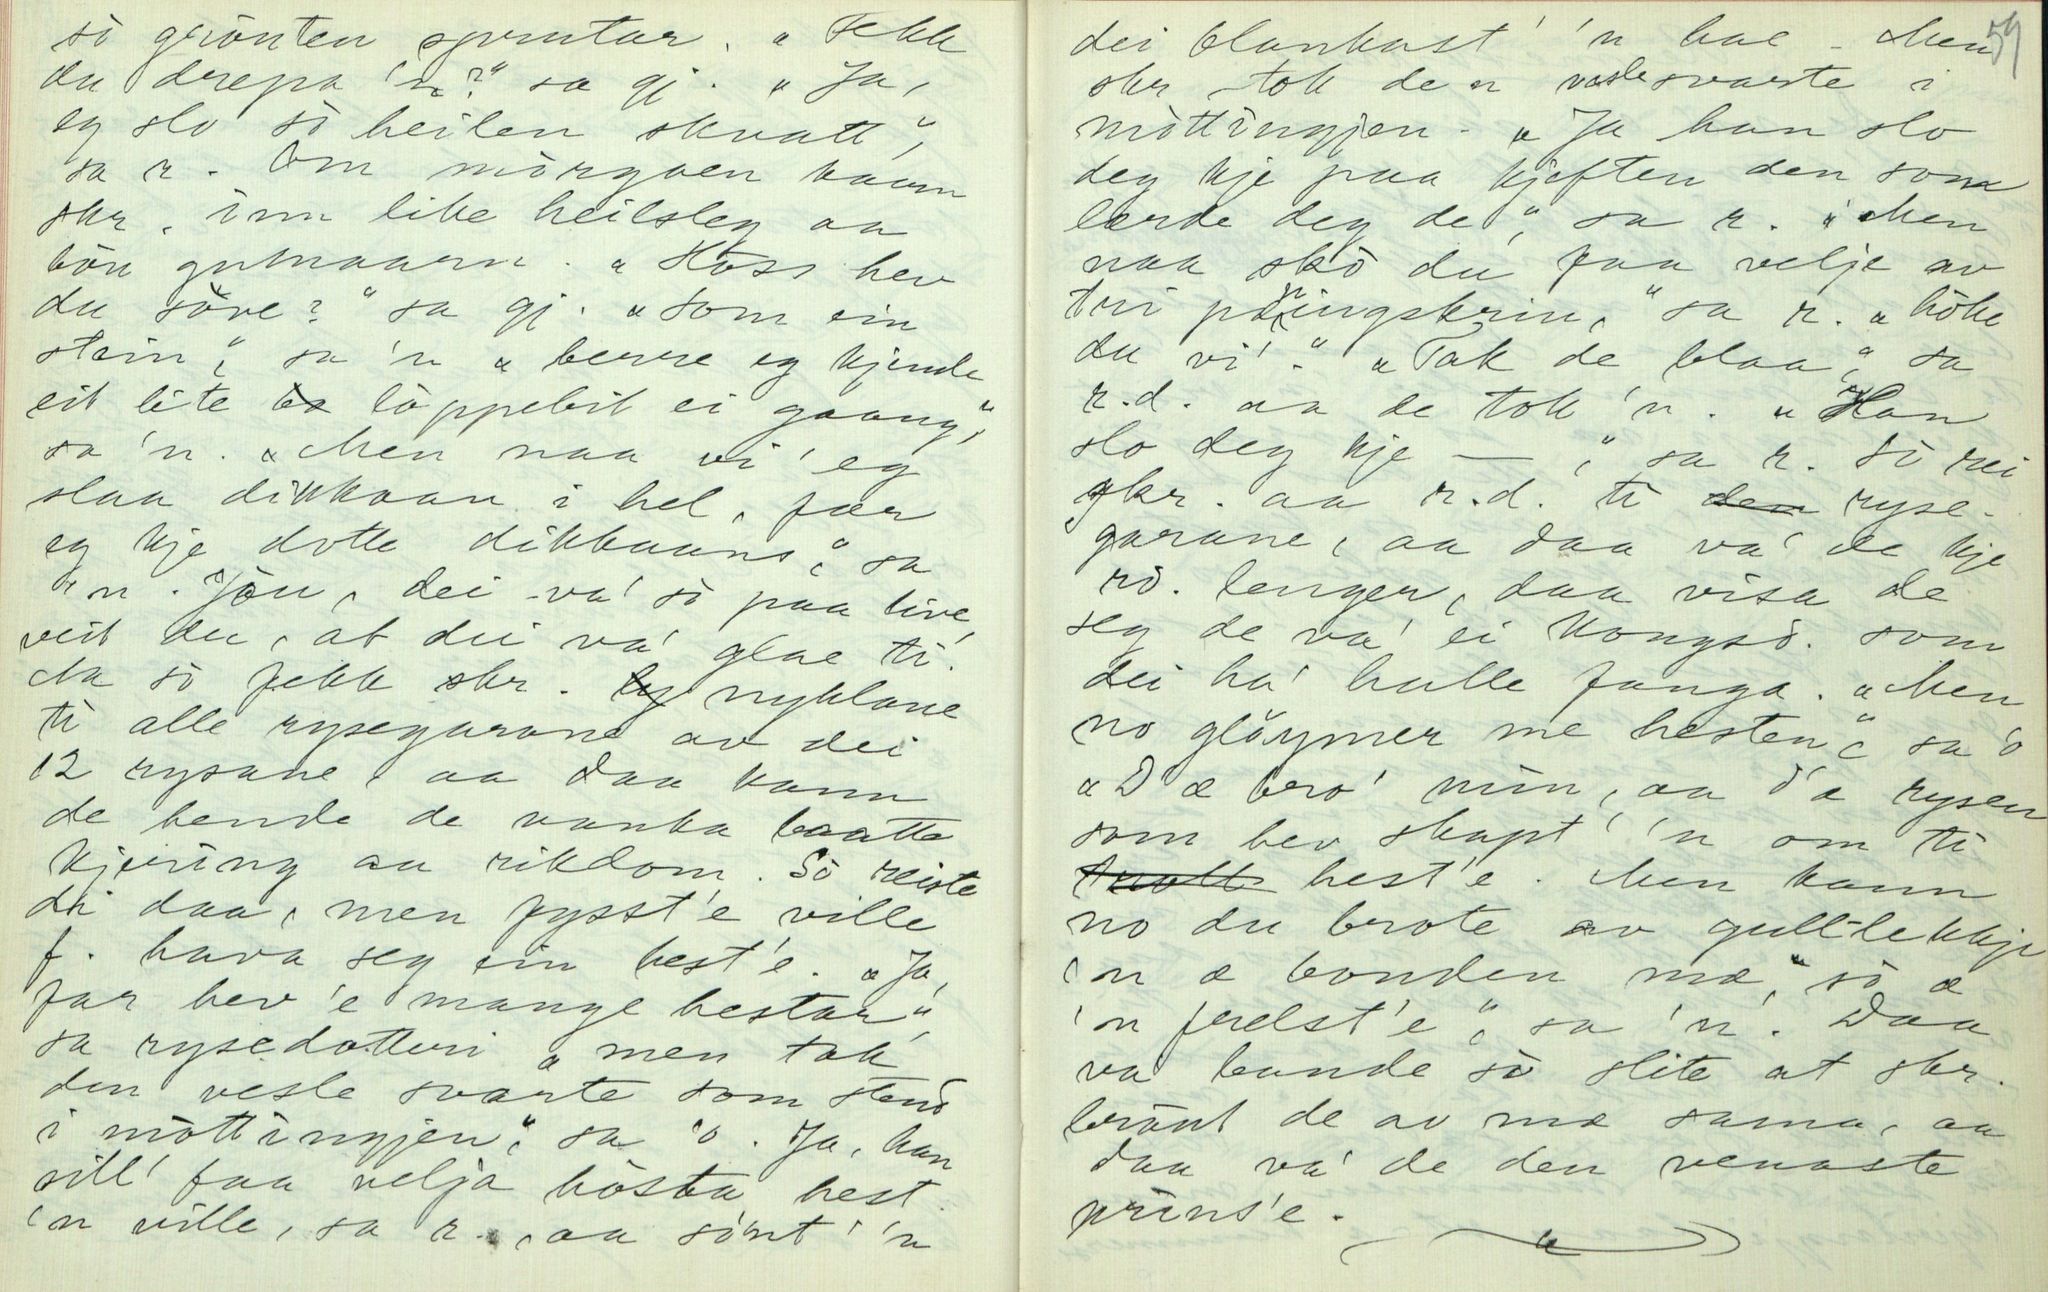 sò grönten sprutar. „Fekk
du drepa 'n?“ sa gj. „Ja,
eg slo sò heilen skvatt“,
sa r. Om mòrgoen kaam
skr. inn like heilsleg aa
bòu gumaarn. „Hoss hev
du sòve?“ sa gj. „som ein
stein“, sa 'n „berre eg kjende
eit lite lòppebit ei gaang“,
sa 'n. „Men naa vi' eg
slaa dikkaan i hel, faer
eg kje dotte dikkaans“, sa
'n. Jòu, dei va' sò paa live,
veit du, at dei va' glae ti'.
Aa sò fekk skr. nyklane
ti alle rysegarane av dei
12 rysane, aa daa kann
de hende de vanka baatte
kjering aa rikdom. Sò reiste
dei daa, men fysst'e ville
f. hava seg ein hest'e. „Ja,
far hev 'e mange hestar“,
sa rysedotteri „men tak
den vesle svarte som stend
i mòttingjen“, sa 'o. Ja, han
sill' faa velja hòsta hest
'n ville, sa r., aa sònt' 'n
59
dei blankast' 'n hae - Men
skr tok den vesle svarte i
mòttingjen. „Ja han slo
deg kje paa kjeften den som
lærde deg de“, sa r. „Men
naa skò du faa velje av
tri pengskrin,“ sa r. „hòke
du vi'.“ „Tak de blaa“, sa
r.d. aa de tok 'n. „Han
slo deg kje —“, sa r. Sò rei
skr. aa r.d. ti ryse-
garane, aa daa va' de kje
rd. lenger, daa visa de
seg de va' ei kongsd. som
dei ha' halle fanga. „Men
no glöymer me hesten“, sa 'o
„D'æ bro' min, aa d'æ rysen
som hev skapt' 'n om ti
hest'e. Men kann
no du brote av gull-lekkje
'n æ bonden mæ, sò æ
'n frelst'e“, sa 'n'. Daa
va bande sò slite at skr.
bròut de av mæ sama, aa
daa va' de den venaste
prins'e.